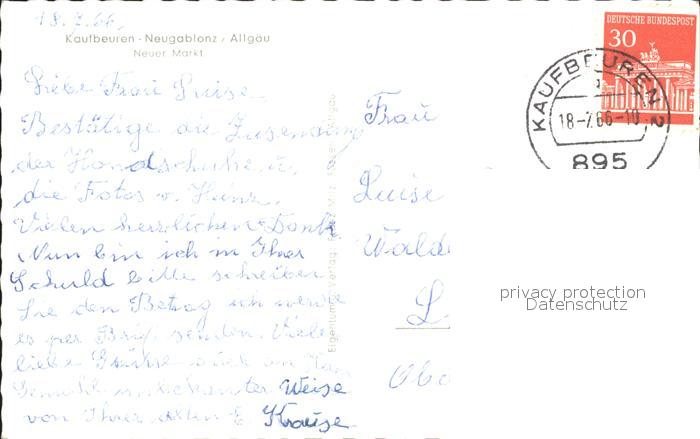 18.7.66.
Kaufbeuren - Neugablonz / Allgäu
Neuer Markt
DEUTSCHE BUNDESPOST
30
KAUFBEUREN 2
18-7.66-10
895
Liebe Frau Luise
Bestätige die Zusendung
der Handschuhe u.
die Fotos v. Heinz.
Vielen herzlichen Dank
Nun bin ich in Ihrer
Schuld bitte schreiben
Sie den Betrag ich werde
es per Brief senden. Viele
liebe Grüsse auch an
Gemahl unbekannter Weise
von Ihrer alten E Krause
Frau
Luise
Walde
L
Obe
Eigentum u. Verlag
privacy protection
Datenschutz